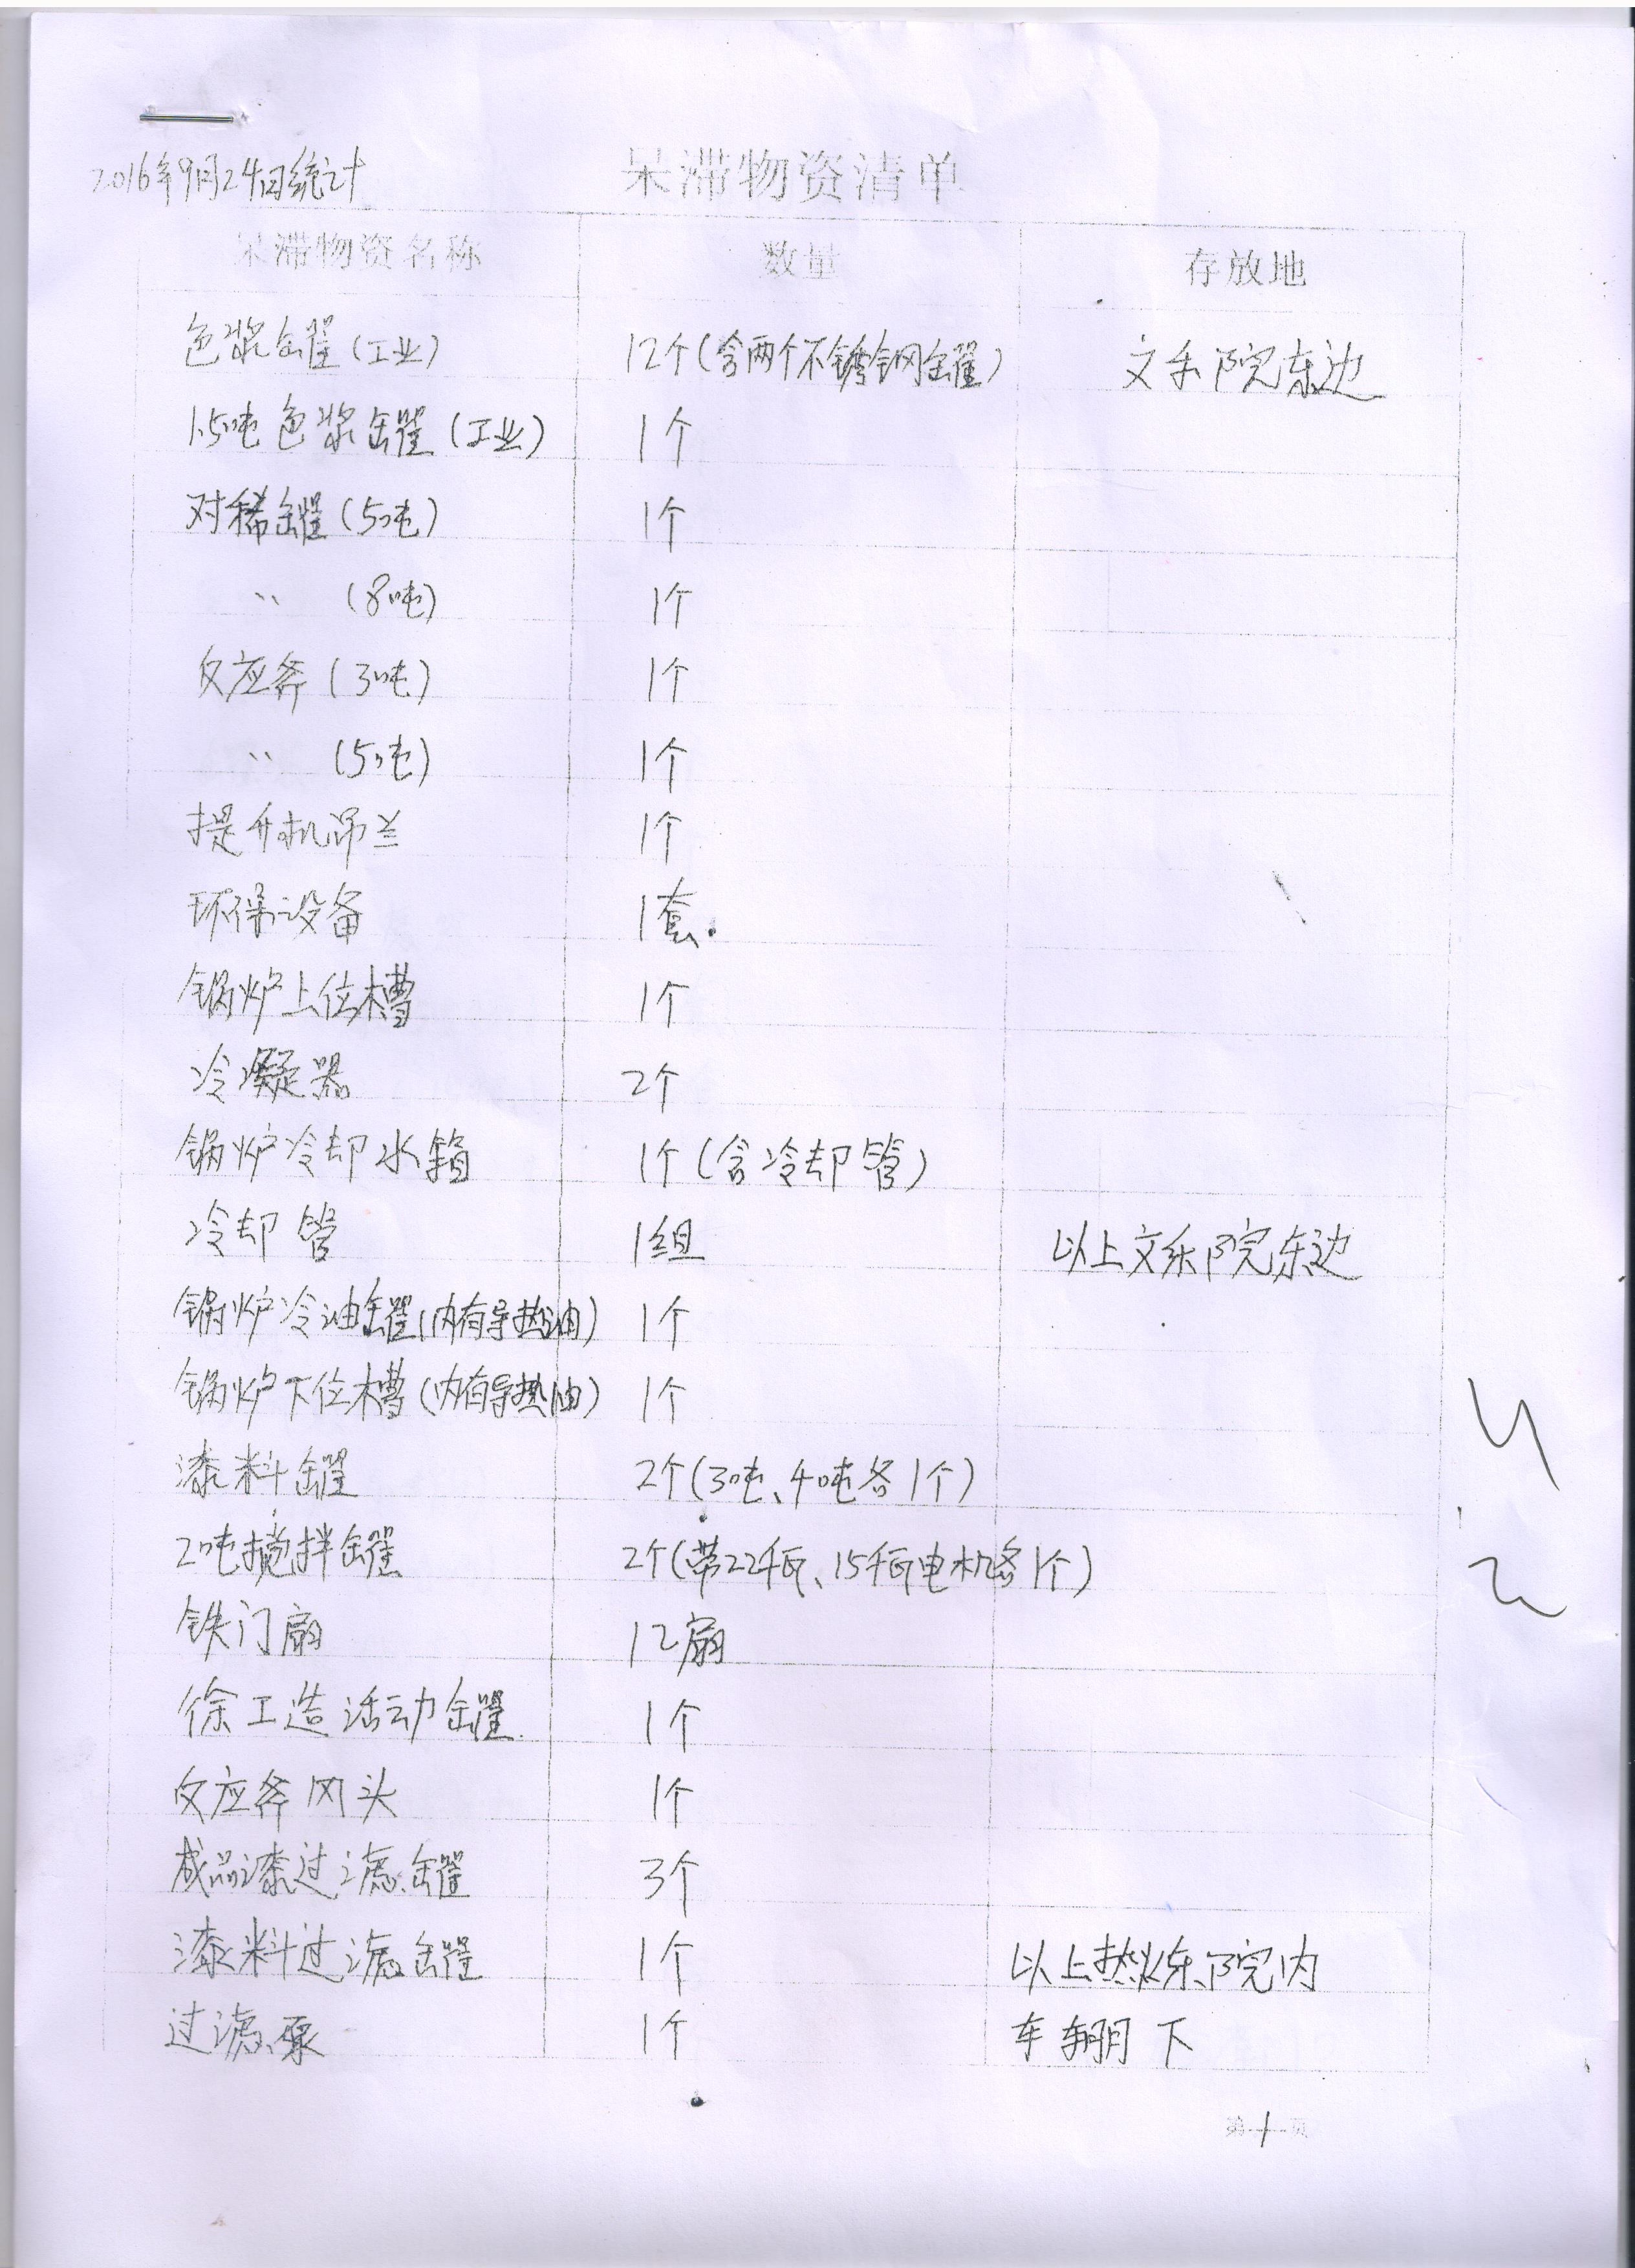 2016年9月24日统计 呆滞物资清单
呆滞物资名称 数量 存放地
色浆罐(工业) 12个(含两个不锈钢罐) 文乐院东边
1.5吨色浆罐(工业) 1个
对稀罐(5吨) 1个
〃 (8吨) 1个
反应斧(3吨) 1个
〃 (5吨) 1个
提升机吊兰 1个
环保设备 1套
锅炉上位槽 1个
冷凝器 2个
锅炉冷却水箱 1个(含冷却管)
冷却管 1组 以上文乐院东边
锅炉冷油罐(内有导热油) 1个
锅炉下位槽(内有导热油) 1个
漆料罐 2个(3吨、4吨各1个)
2吨搅拌罐 2个(带22千瓦、15千瓦电机各1个)
铁门扇 12扇
徐工造活动罐 1个
反应斧风头 1个
成品漆过滤罐 3个
漆料过滤罐 1个 以上热炼东院内
过滤泵 1个 车棚下
第1页